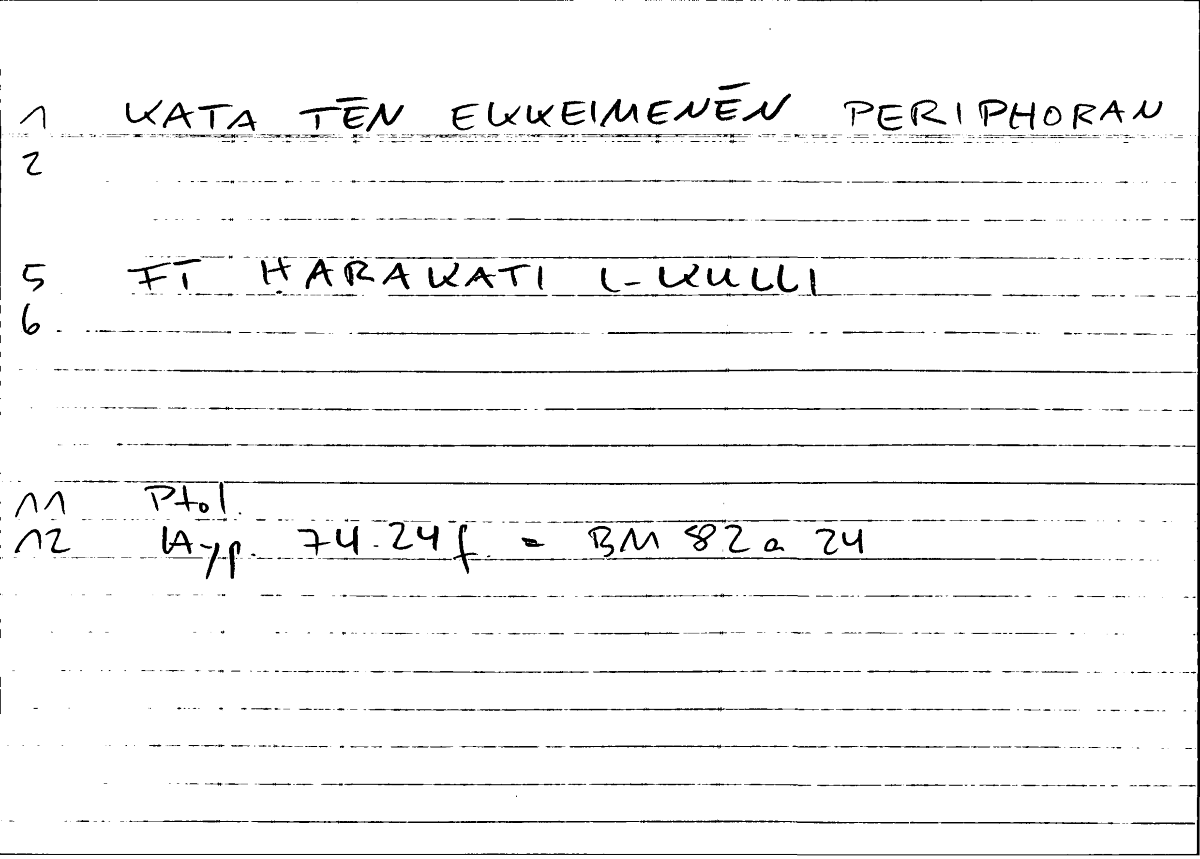 1 KATA TĒN EKKEIMENĒN PERIPHORAN
2
5 FĪ ḤARAKATI L-KULLI
6
11 Ptol.
12 Hyp. 74.24f. = BM 82a 24